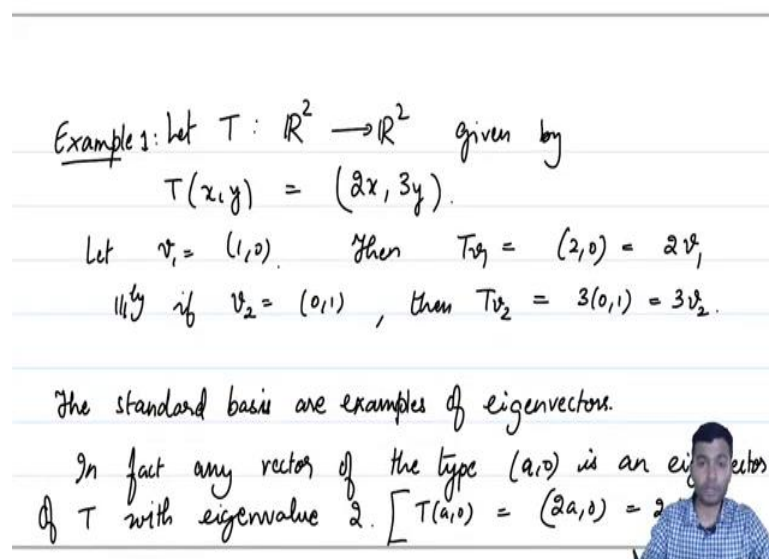 Example 1: Let T : ℝ² → ℝ² given by
T(x,y) = (2x, 3y).
Let v₁ = (1,0). Then Tv₁ = (2,0) = 2v₁
|||ly if v₂ = (0,1), then Tv₂ = 3(0,1) = 3v₂.
The standard basis are examples of eigenvectors.
In fact any vector of the type (a,0) is an
of T with eigenvalue 2. [T(a,0) = (2a,0) = 2